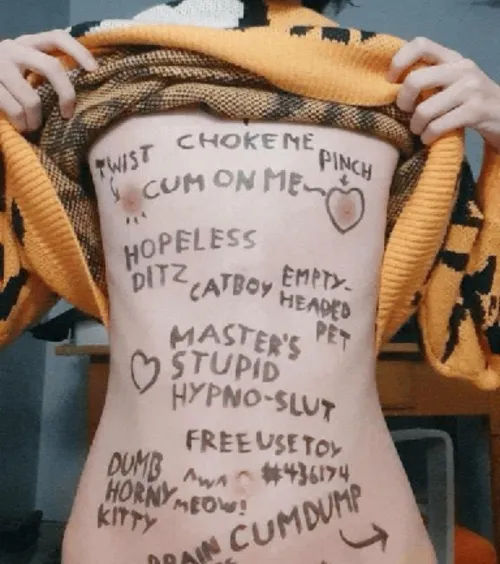 CHOKE ME
TWIST
&
PINCH
CUM ON ME
HOPELESS
DITZ
CATBOY
EMPTY-
HEADED
PET
MASTER'S
STUPID
HYPNO-SLUT
FREE USE TOY
#436174
DUMB
HORNY
KITTY
AWA
MEOW!
CUMDUMP
BRAIN